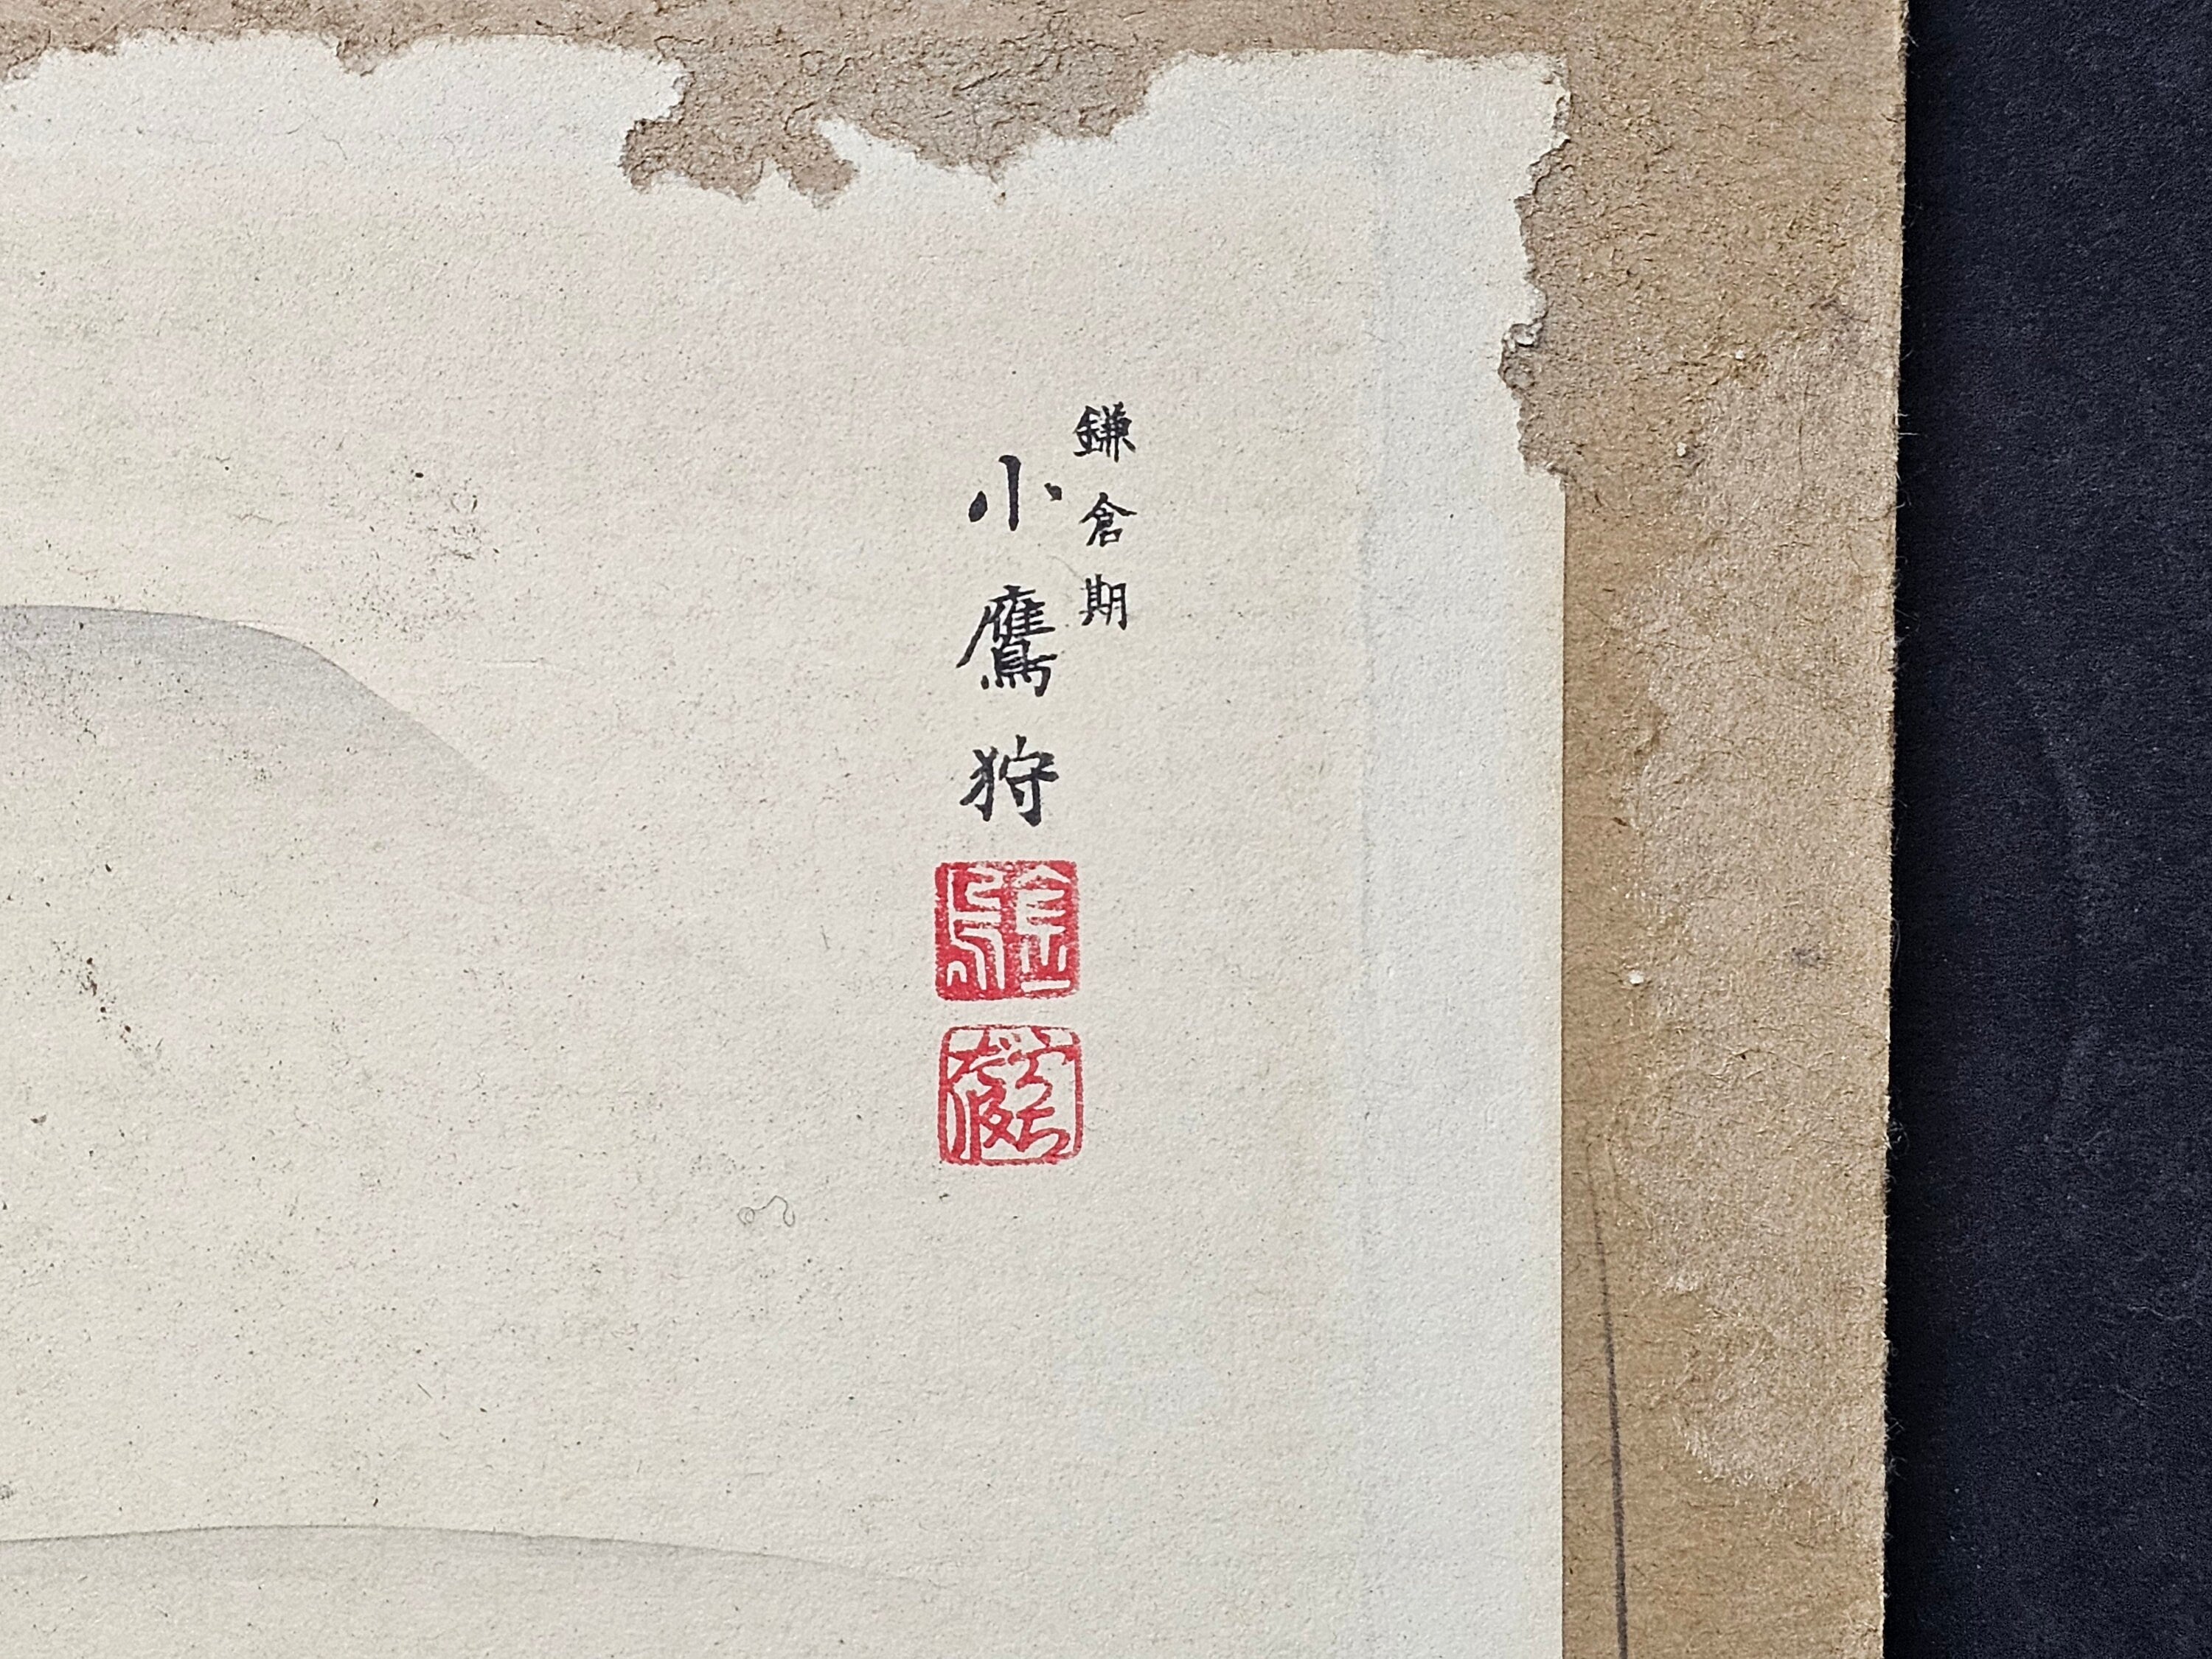 鎌倉期
小鷹狩